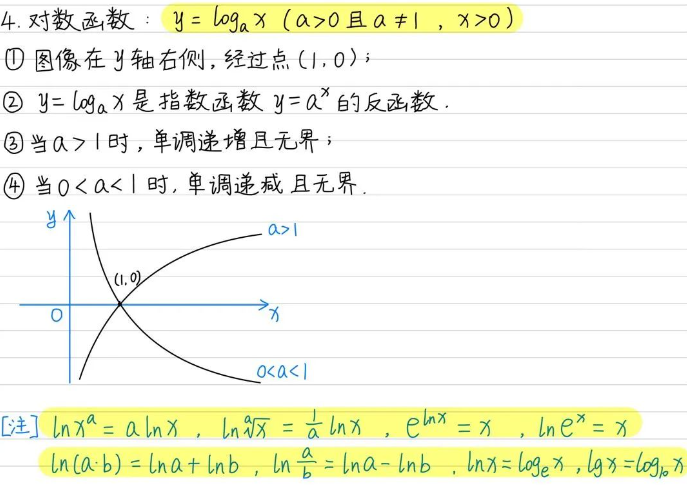 4. 对数函数: y = logₐx (a>0 且 a≠1 , x>0)
① 图像在y轴右侧,经过点(1,0);
② y=logₐx 是指数函数 y=aˣ 的反函数.
③ 当a>1时,单调递增且无界;
④ 当0<a<1时,单调递减且无界.
y
a>1
(1,0)
0
x
0<a<1
[注] lnxᵃ = alnx , ln ᵃ√x = 1/a lnx , e^{lnx} = x , lneˣ = x
ln(a·b) = lna + lnb , ln a/b = lna - lnb , lnx = logₑx , lgx = log₁₀x